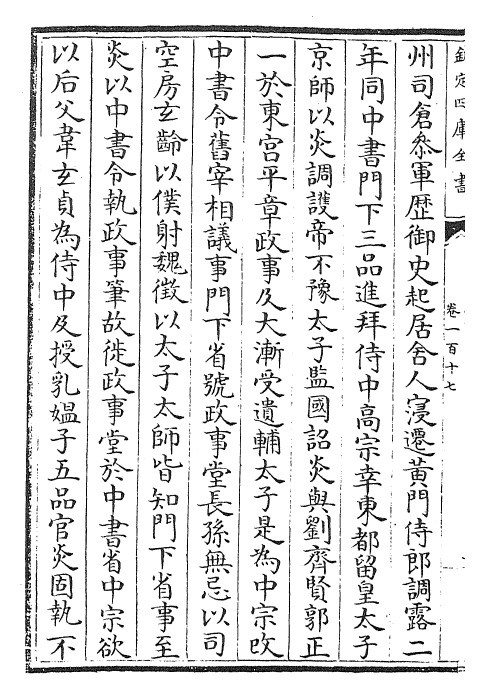 欽定四庫全書
卷一百十七
州司倉叅軍歴御史起居舍人寖遷黄門侍郎調露二
年同中書門下三品進拜侍中高宗幸東都留皇太子
京師以炎調護帝不豫太子監國詔炎與劉齊賢郭正
一於東宫平章政事及大漸受遺輔太子是為中宗改
中書令舊宰相議事門下省號政事堂長孫無忌以司
空房玄齡以僕射魏徴以太子太師皆知門下省事至
炎以中書令執政事筆故徙政事堂於中書省中宗欲
以后父韋玄貞為侍中及授乳媼子五品官炎固執不